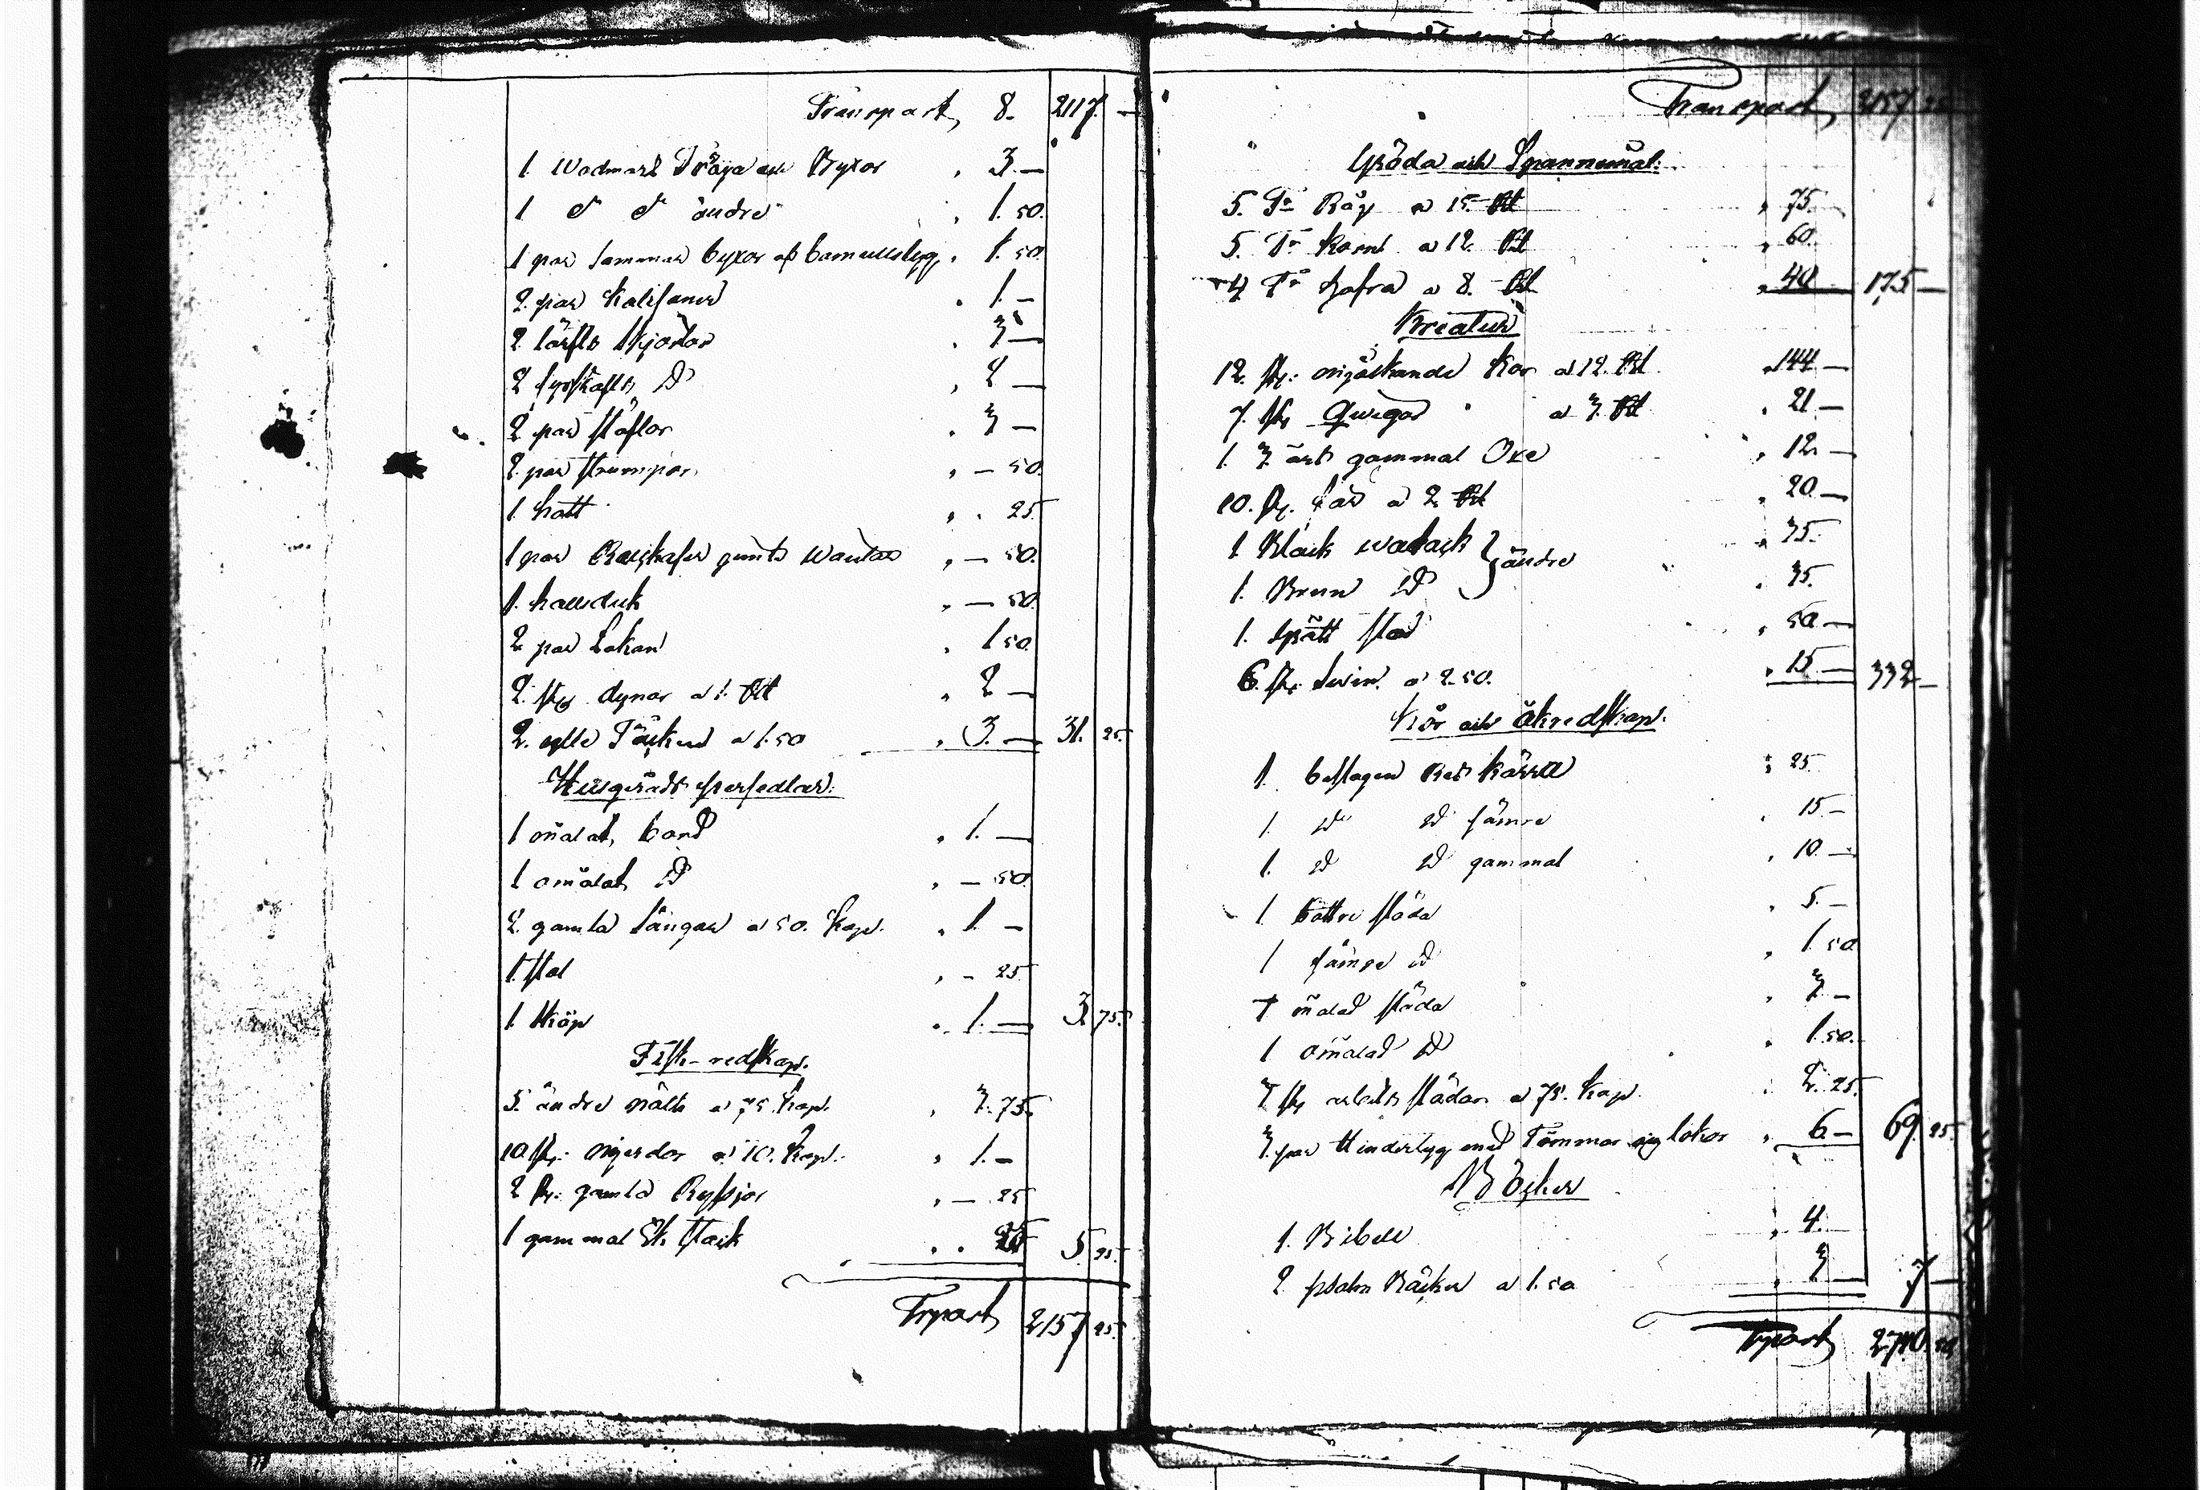 Transport 8. 2117. —
1 Wadmals Tröja och Byxor " 3. —
1 d:o d:o ändre " 1. 50.
1 par sommar byxor af bomullstyg " 1. 50.
2 par Kalsoner " 1. —
2 lärfts skjortor " 3 —
2 fyrskafts D:o " 2 —
2 par stöflor " 3 —
2 par strumpor " — 50.
1 hatt " " 25
1 par gamla wantar " — 50.
1. halsduk " — 50.
2 par Lakan " 1 50.
2. st. dynor a 1. Rbl " 2 —
2. ylle Täcken a 1. 50 " 3. — 31. 25.
Husgeråds persedlar.
1 målat bord " 1. —
1 omålat D:o " — 50.
2 gamla sängar a 50. kop. " 1 —
1. stol " — 25
1. Skåp " 1. — 3. 75.
Fisk-redskap.
5. ändre nätt a 75. kop. " 3. 75.
10 st. mjerdor a 10. kop. " 1. —
2 st. gamla Ryssjor " — 25
1 gammal Ek stock " " 25 5. 25.
Trsport 2157 25.
Transport 2157 25
Gröda och Spannemål.
5. T:r Råg a 15. Rbl " 75.
5. T:r Korn a 12. Rbl " 60.
4 T:r hafra a 8. Rbl " 40 175 —
Kreatur
12. st. mjölkande Kor a 12. Rbl " 144 —
7. st. Qwigor a 3. Rbl " 21 —
1. 3 års gammal Oxe " 12 —
10. st. får a 2 Rbl " 20. —
1 Black walack } ändre " 35.
1. Brun D:o " 35.
1. sto " 50 —
6. st. swin a 2. 50. " 15 — 332 —
Kör och åkredskap.
1 beslagen kärra " 25
1. D:o D:o sämre " 15 —
1. D:o D:o gammal " 10 —
1 bättre släda " 5. —
1 sämre D:o " 1. 50
1 målad släda " 3 —
1 omålad D:o " 1. 50.
3 st. arbets slädar a 75. kop. " 2. 25.
3 par med Tömmar och lokor " 6 — 69. 25.
Böcker
1. Bibell " 4.
2 psalm Böcker a 1. 50 " 3 — 7 —
Trsport 2740. 50